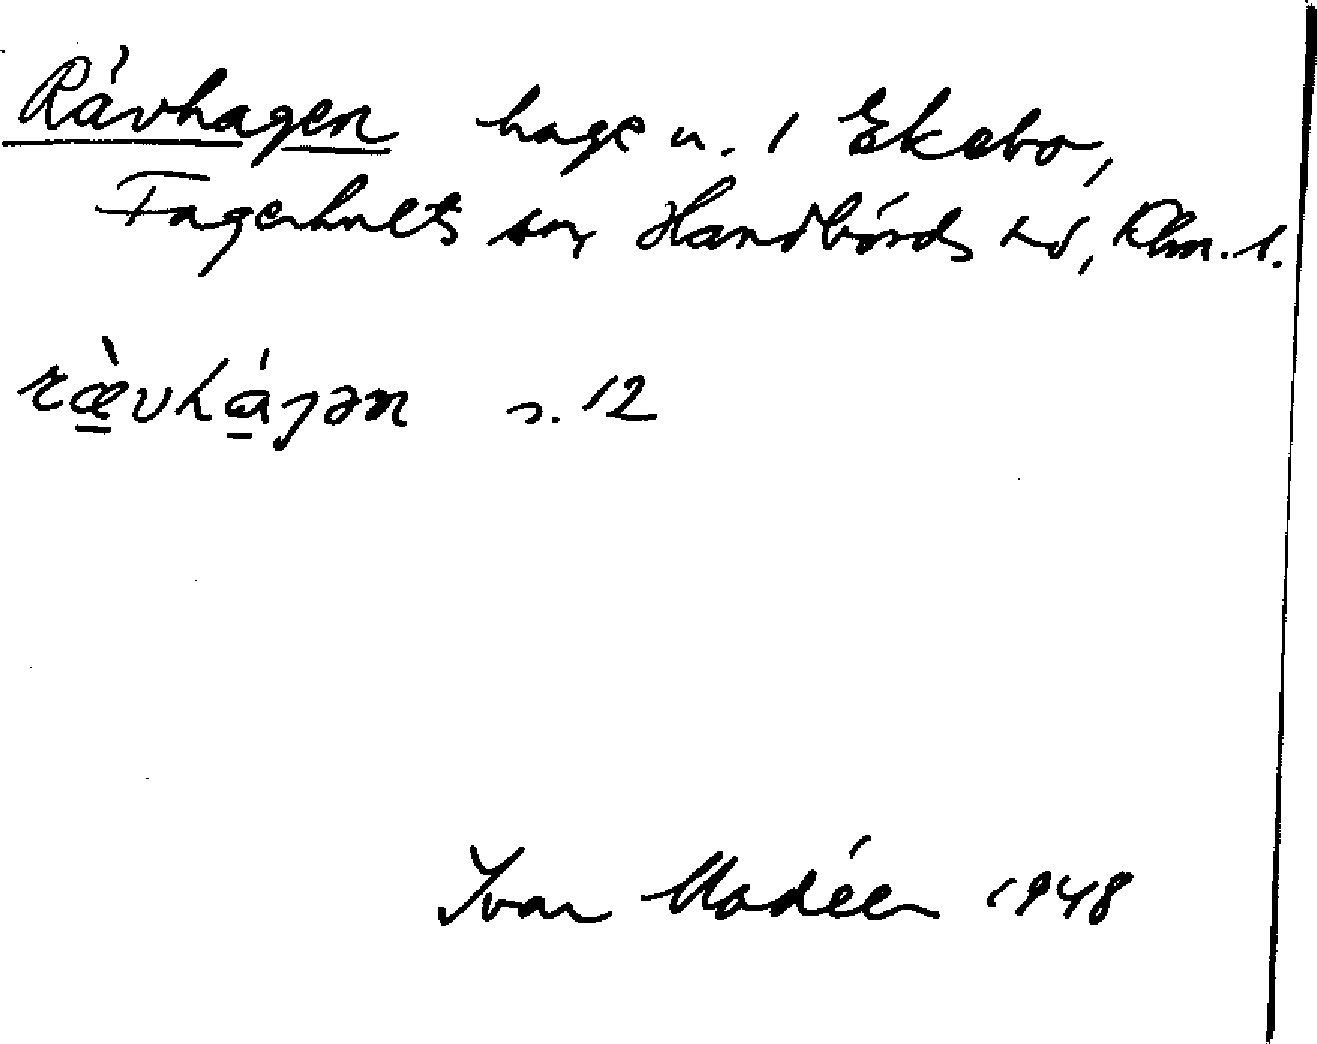 Rävhagen hage u. 1 Ekebo,
Fagerhults sn Handbörds hd, Klm. l.
ræ̀vhágən s. 12
Ivar Modéer 1948